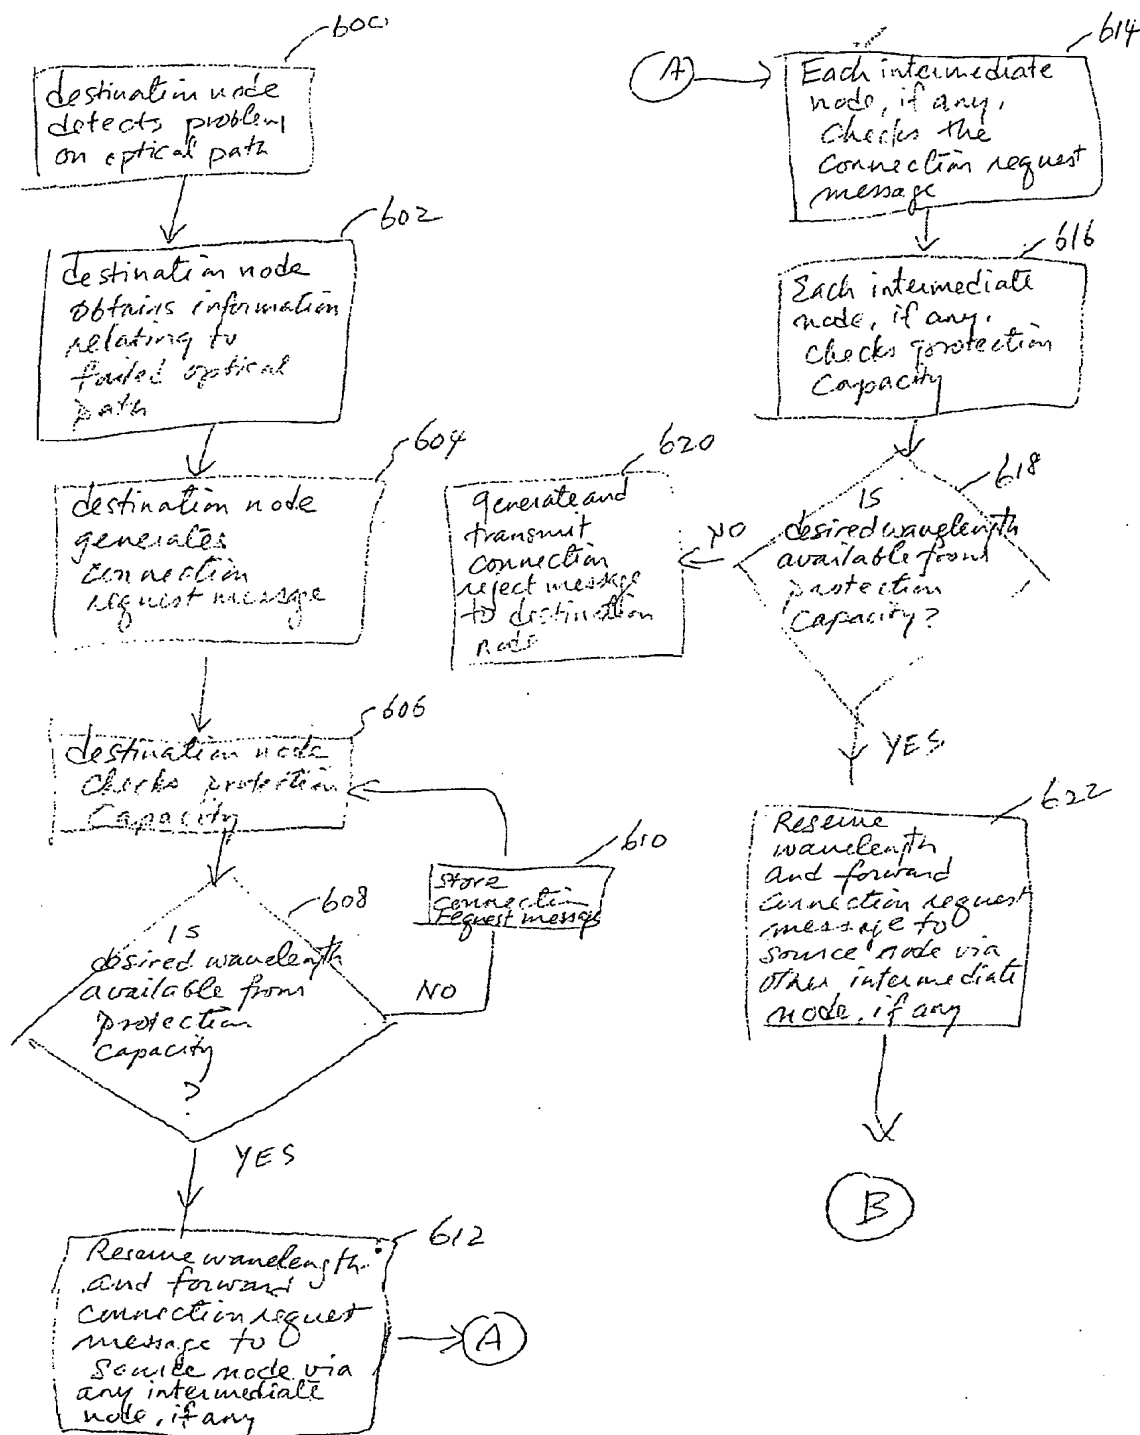 600
destination node
detects problem
on optical path
602
destination node
obtains information
relating to
failed optical
path
604
destination node
generates
connection
request message
606
destination node
checks protection
capacity
608
Is
desired wavelength
available from
protection
capacity
?
NO
610
store
connection
request message
YES
612
Reserve wavelength
and forward
connection request
message to
source node via
any intermediate
node, if any
A
A
614
Each intermediate
node, if any,
checks the
connection request
message
616
Each intermediate
node, if any,
checks protection
capacity
618
Is
desired wavelength
available from
protection
capacity?
NO
620
generate and
transmit
connection
reject message
to destination
node
YES
622
Reserve
wavelength
and forward
connection request
message to
source node via
other intermediate
node, if any
B